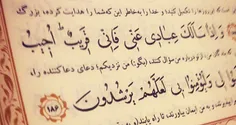 را تکمیل کنید و خدا را به خاطر این که شما را هدایت کرده، بزرگ
وَإِذَا سَأَلَكَ عِبَادِى عَنِّى فَإِنِّى قَرِيبٌ أُجِيبُ
درباره من سؤال کنند، (بگو:) من نزدیکم! دعای دعا کننده را
لِى وَلْيُؤْمِنُوا بِى لَعَلَّهُمْ يَرْشُدُونَ ١٨٦
و به من ایمان بیاورند تا راه یابند